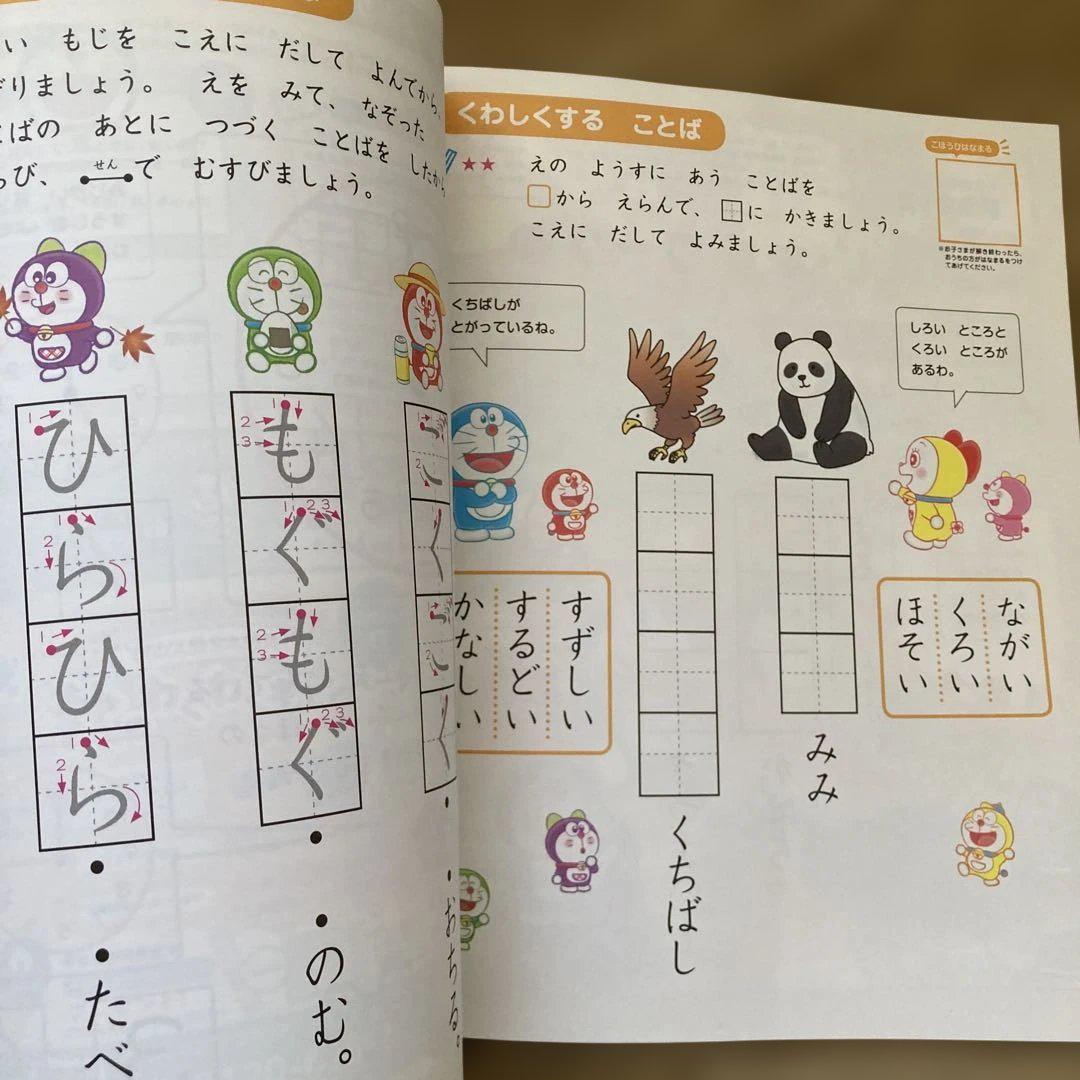 い もじを こえに だして よんでから、
りましょう。 えを みて、 なぞった
ばの あとに つづく ことばを したから
らび、 せんで むすびましょう。
ひらひら
もぐもぐ
たべ
のむ。
おちる。
くわしくする ことば
★★
えの ようすに あう ことばを
から えらんで、 に かきましょう。
こえに だして よみましょう。
ごほうびはなまる
※お子さまが解き終わったら、
おうちの方がはなまるをつけ
てあげてください。
くちばしが
とがっているね。
しろい ところと
くろい ところが
あるわ。
すずしい
するどい
かなしい
くちばし
みみ
ながい
くろい
ほそい